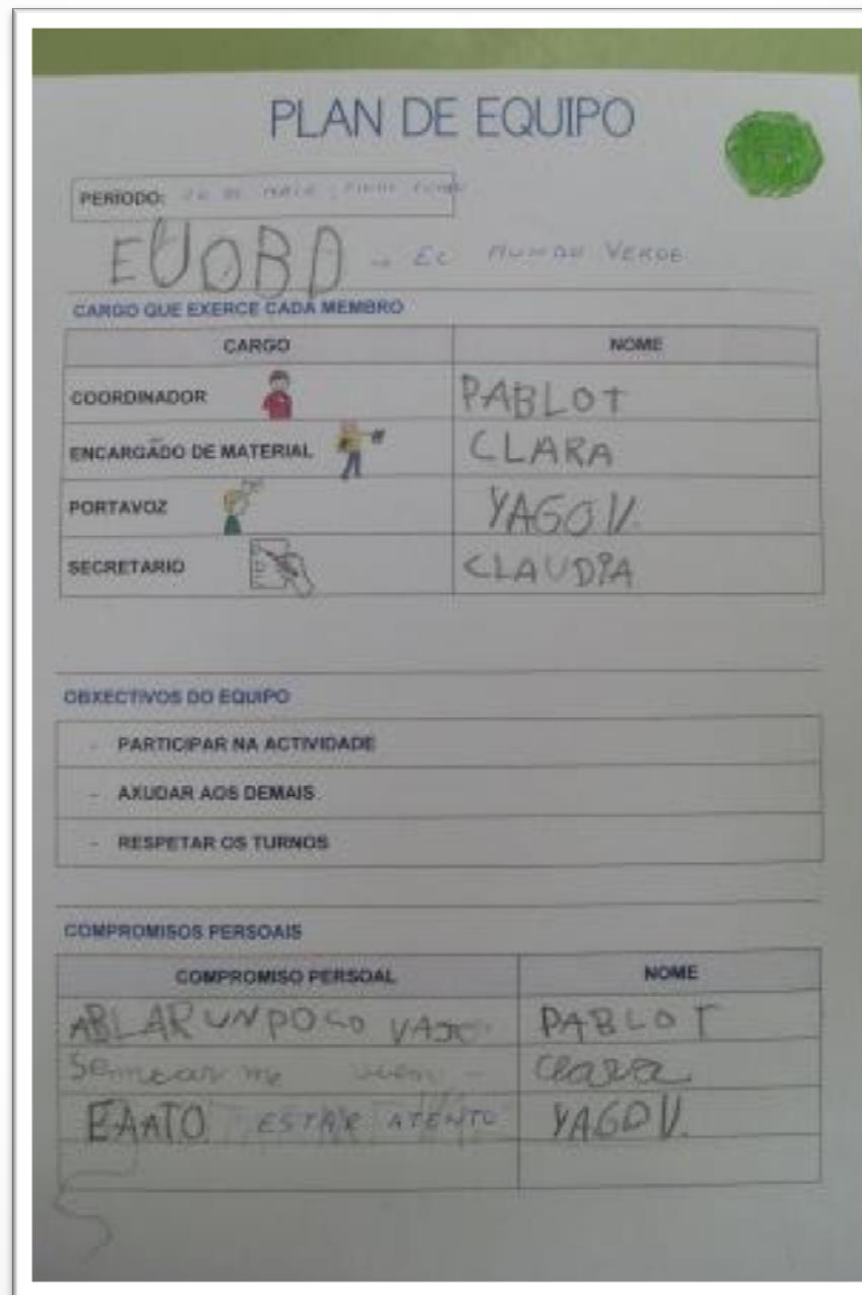 PLAN DE EQUIPO
PERÍODO: 20 DE MAIO
EUOBD → EL MUNDO VERDE
CARGO QUE EXERCE CADA MEMBRO
CARGO NOME
COORDINADOR PABLO T
ENCARGADO DE MATERIAL CLARA
PORTAVOZ YAGO V.
SECRETARIO CLAUDIA
OBXECTIVOS DO EQUIPO
- PARTICIPAR NA ACTIVIDADE
- AXUDAR AOS DEMAIS
- RESPETAR OS TURNOS
COMPROMISOS PERSOAIS
COMPROMISO PERSOAL NOME
ABLAR UN POCO VAJO PABLO T
me Clara
EAATO ESTAR ATENTO YAGO V.